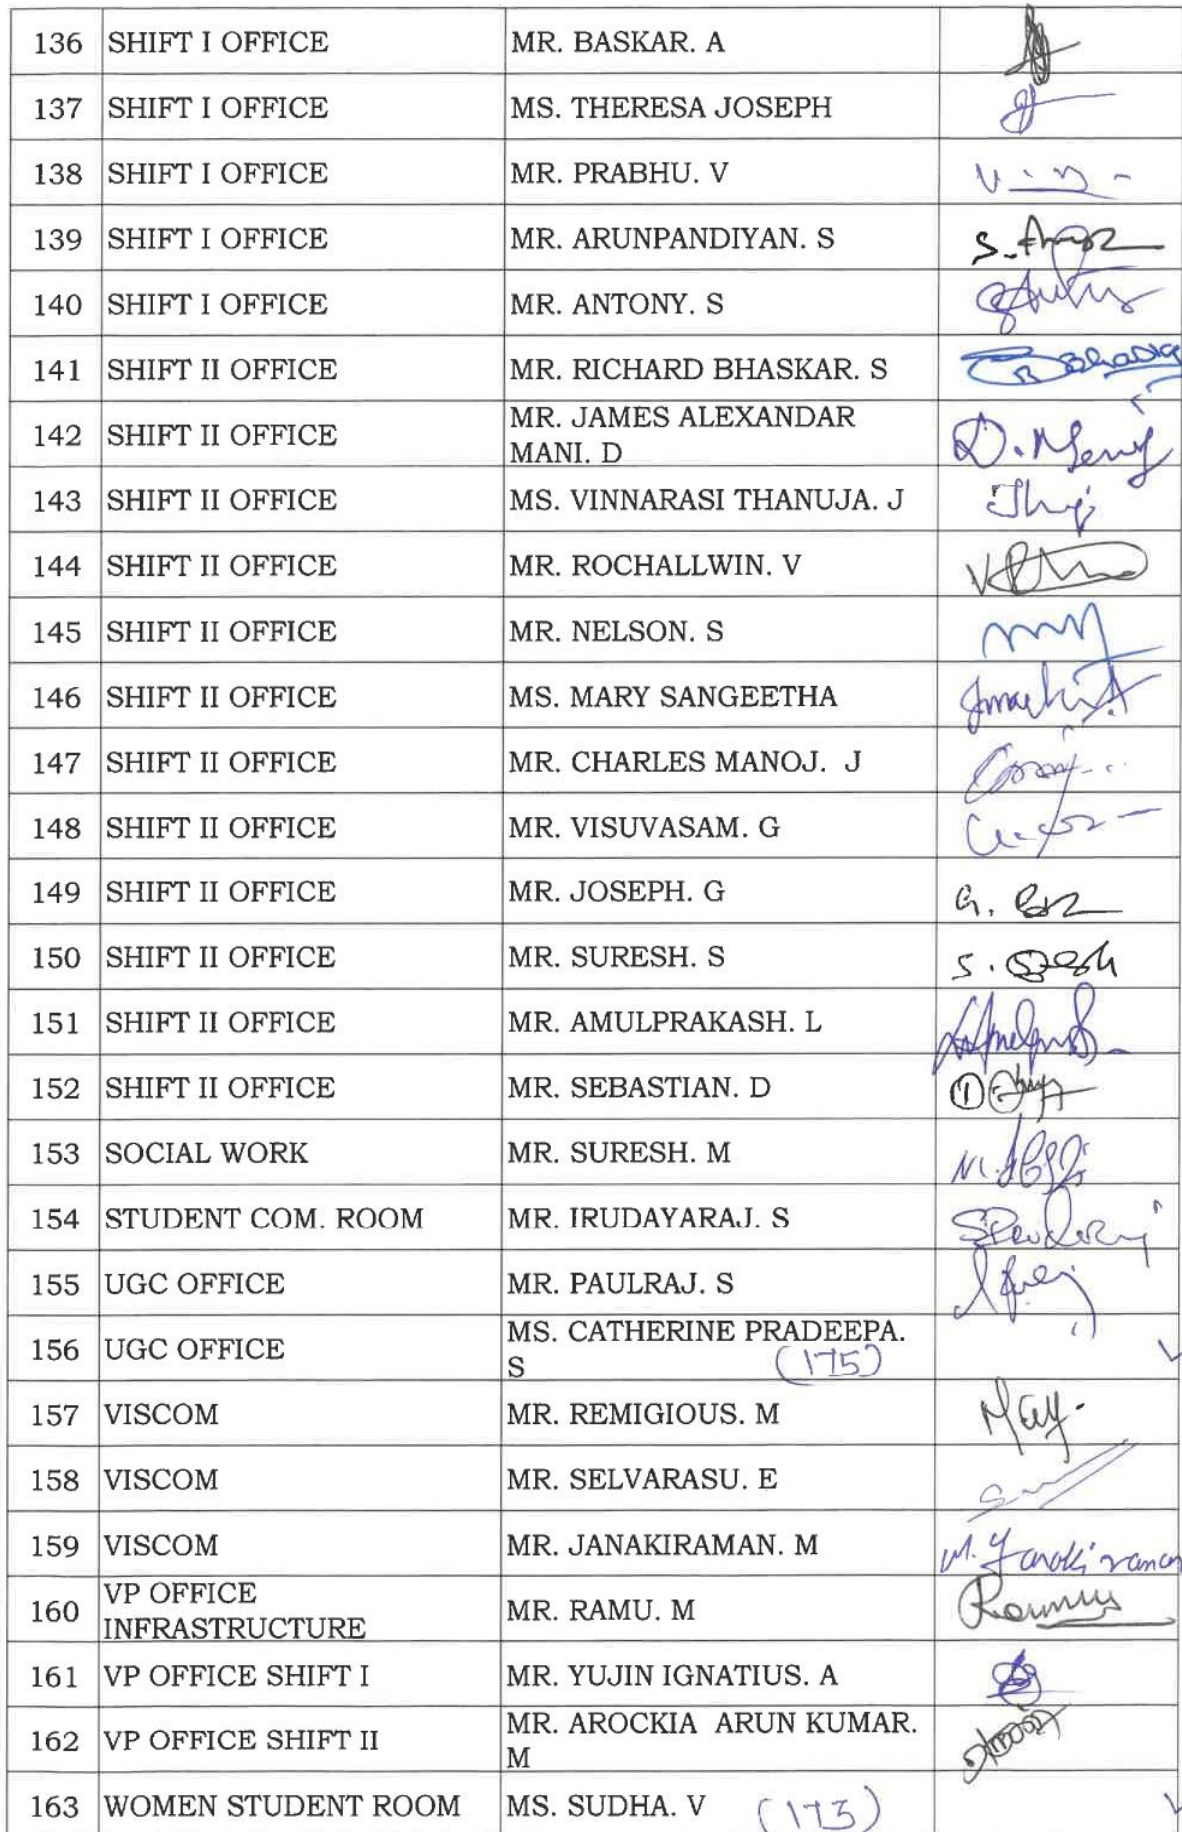 136 SHIFT I OFFICE MR. BASKAR. A
137 SHIFT I OFFICE MS. THERESA JOSEPH
138 SHIFT I OFFICE MR. PRABHU. V
139 SHIFT I OFFICE MR. ARUNPANDIYAN. S
140 SHIFT I OFFICE MR. ANTONY. S
141 SHIFT II OFFICE MR. RICHARD BHASKAR. S
142 SHIFT II OFFICE MR. JAMES ALEXANDAR
MANI. D
143 SHIFT II OFFICE MS. VINNARASI THANUJA. J
144 SHIFT II OFFICE MR. ROCHALLWIN. V
145 SHIFT II OFFICE MR. NELSON. S
146 SHIFT II OFFICE MS. MARY SANGEETHA
147 SHIFT II OFFICE MR. CHARLES MANOJ. J
148 SHIFT II OFFICE MR. VISUVASAM. G
149 SHIFT II OFFICE MR. JOSEPH. G
150 SHIFT II OFFICE MR. SURESH. S
151 SHIFT II OFFICE MR. AMULPRAKASH. L
152 SHIFT II OFFICE MR. SEBASTIAN. D
153 SOCIAL WORK MR. SURESH. M
154 STUDENT COM. ROOM MR. IRUDAYARAJ. S
155 UGC OFFICE MR. PAULRAJ. S
156 UGC OFFICE MS. CATHERINE PRADEEPA.
S (175)
157 VISCOM MR. REMIGIOUS. M
158 VISCOM MR. SELVARASU. E
159 VISCOM MR. JANAKIRAMAN. M
160 VP OFFICE
INFRASTRUCTURE MR. RAMU. M
161 VP OFFICE SHIFT I MR. YUJIN IGNATIUS. A
162 VP OFFICE SHIFT II MR. AROCKIA ARUN KUMAR.
M
163 WOMEN STUDENT ROOM MS. SUDHA. V (173)